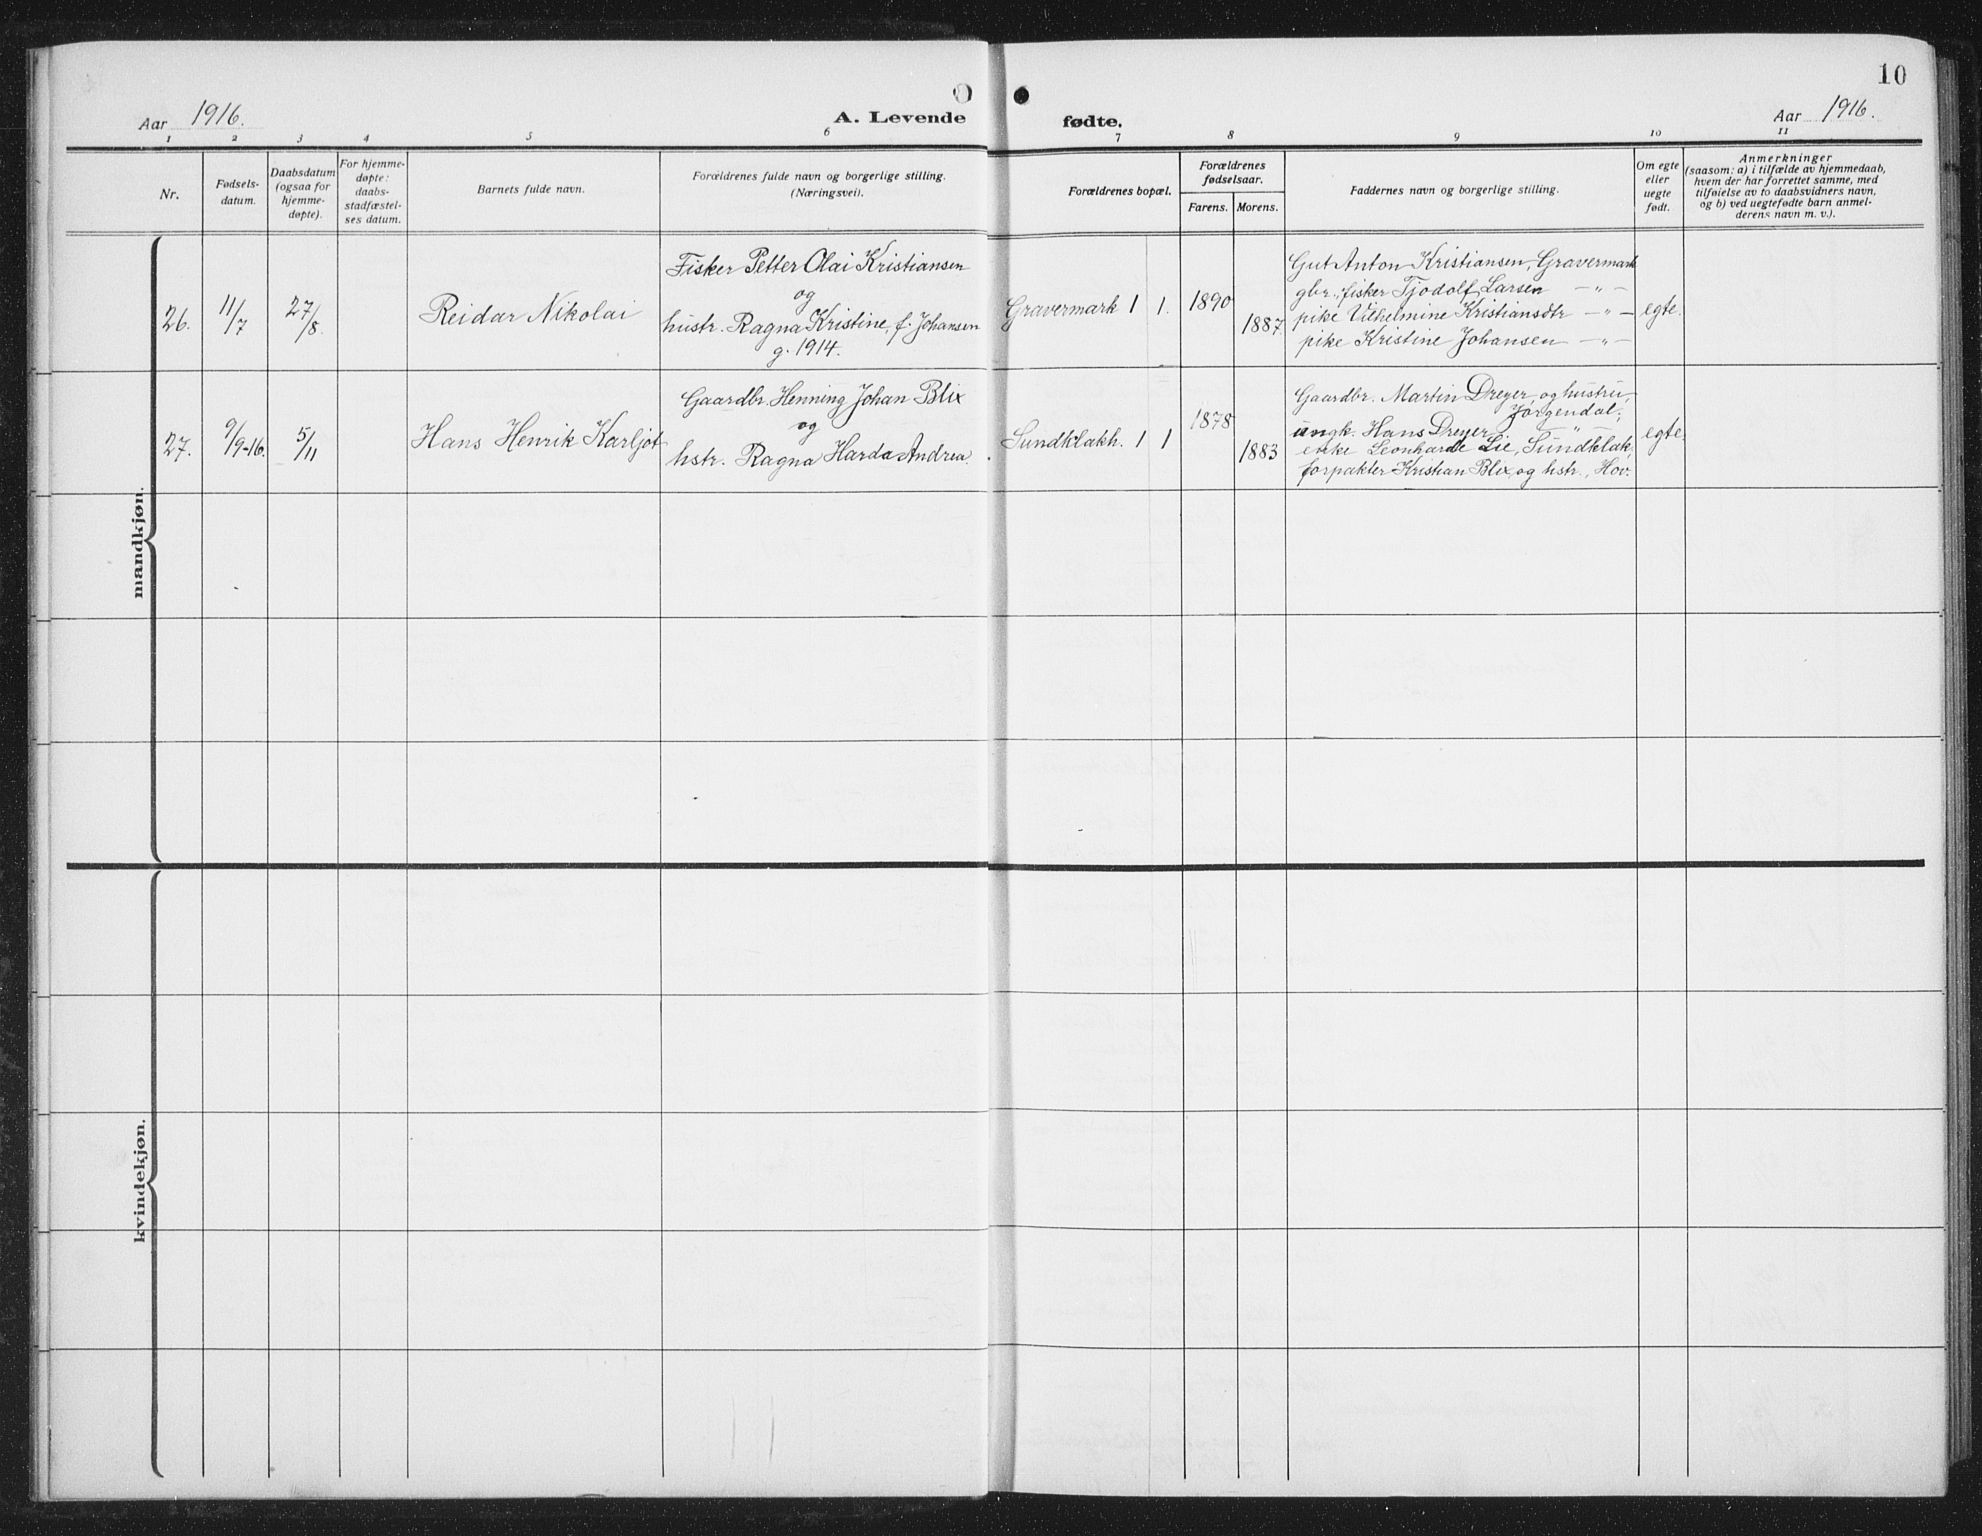 10
Aar 1916.
A. Levende fødte.
Aar 1916.
1 2 3 4 5 6 7 8 9 10 11
Nr.
Fødsels-
datum.
Daabsdatum
(ogsaa for
hjemme-
døpte).
For hjemme-
døpte:
daabs-
stadfæstel-
ses datum.
Barnets fulde navn.
Forældrenes fulde navn og borgerlige stilling.
(Næringsvei).
Forældrenes bopæl.
Forældrenes
fødselsaar.
Farens. Morens.
Faddernes navn og borgerlige stilling.
Om egte
eller
uegte
født.
Anmerkninger
(saasom: a) i tilfælde av hjemmedaab,
hvem der har forrettet samme, med
tilføielse av to daabsvidners navn,
og b) ved uegtefødte barn anmel-
derens navn m. v.).
mandkjøn.
26.
11/7
27/8.
Reidar Nikolai
Fisker Petter Olai Kristiansen
og
hustr. Ragna Kristine, f. Johansen
g. 1914.
Gravermark 1 1.
1890
1887
Gut Anton Kristiansen, Gravermark
gbr., fisker Tjodolf Larsen — " —
pike Vilhelmine Kristiansdtr — " —
pike Kristine Johansen — " —
egte.
27.
9/9-16.
5/11
Hans Henrik Karljot
Gaardbr. Henning Johan Blix
og
hstr. Ragna Harda Andrea.
Sundklakh. 1 1
1878
1883
Gaardbr. Martin Dreyer, og hustru,
Jørgendal;
ungk. Hans Dreyer — " —
enke Leonharde Lie, Sundklak,
forpakter Kristian Blix, og hstr., Hov.
egte.
kvindekjøn.